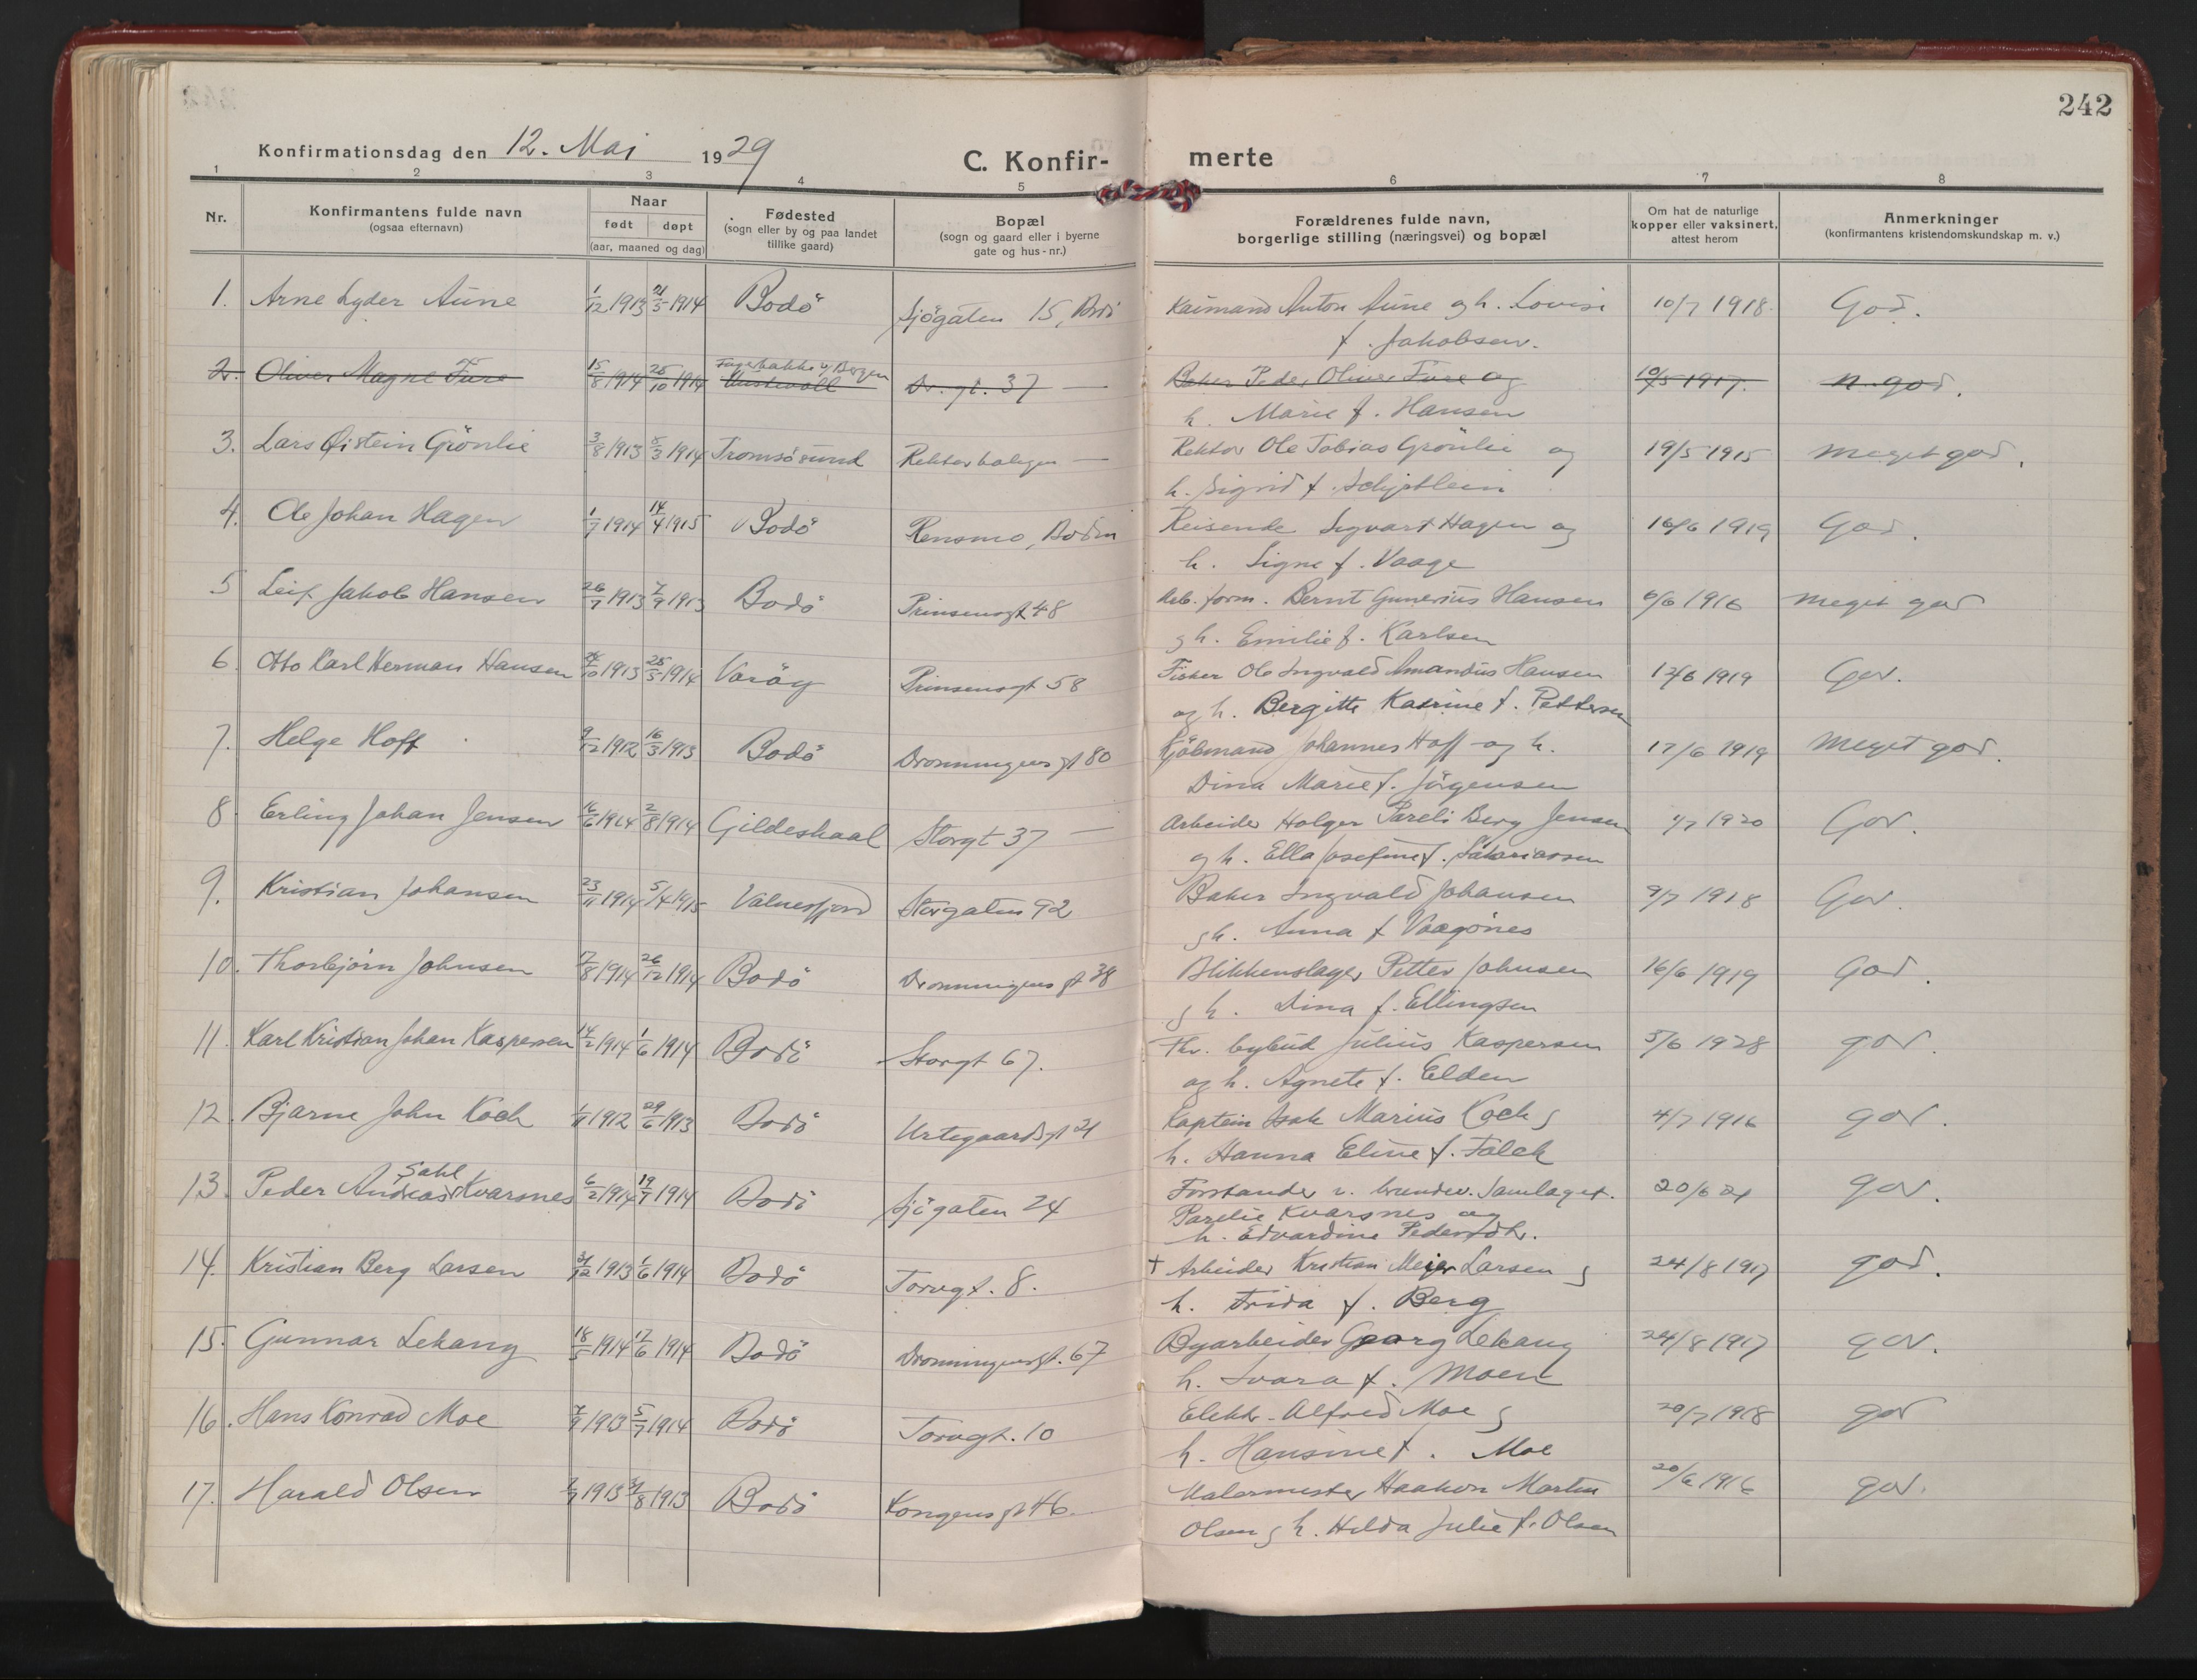 242
Konfirmationsdag den 12. Mai 1929
C. Konfir-
merte
1 2 3 4 5 6 7 8
Nr.
Konfirmantens fulde navn
(ogsaa efternavn)
Naar
født døpt
(aar, maaned og dag)
Fødested
(sogn eller by og paa landet
tillike gaard)
Bopæl
(sogn og gaard eller i byerne
gate og hus-nr.)
Forældrenes fulde navn,
borgerlige stilling (næringsvei) og bopæl
Om hat de naturlige
kopper eller vaksinert,
attest herom
Anmerkninger
(konfirmantens kristendomskundskap m. v.)
1. Arne Lyder Aune 1/12 1913 21/5 1914 Bodö Sjögaten 15, Bodö Kaimand Anton Aune g h. Lovise 10/7 1918. God.
f. Jakobsen.
2. Oliver Magne Fure 15/8 1914 25/10 1914 Fagerbakke v/ Bergen
Austevoll Dr. gt. 37 — Baker Peder Oliver Fure og 10/5 1917. n. god.
h. Marie f. Hansen
3. Lars Øistein Grönlie 3/8 1913 8/3 1914 Tromsösund Rektorboligen — Rektor Ole Tobias Grönlie og 19/5 1915 Meget god.
h. Sigrid f.
4. Ole Johan Hagen 1/7 1914 14/4 1915 Bodö Rensmo, Bodin Reisende Sigvart Hagen og 16/6 1919 God.
h. Signe f. Vaage
5 Leif Jakob Hansen 26/7 1913 7/9 1913 Bodö Prinsensgt 48 Arb. form. Bernt Gunerius Hansen 6/6 1916 Meget god
g h. Emilie f. Karlsen
6. Otto Karl Herman Hansen 24/10 1913 25/5 1914 Varöy Prinsensgt 58 Fisker Ole Ingvald Amandus Hansen 12/6 1919 God.
og h. Bergitte Katrine f. Pettersen
7. Helge Hoff 9/12 1912 16/3 1913 Bodö Dronningens gt 80 Kjöbmand Johannes Hoff og h. 17/6 1919 Meget god.
Dina Marie f. Jörgensen
8 Erling Johan Jensen 16/6 1914 2/8 1914 Gildeskaal Storgt 37 — Arbeider Holger Pareli Berg Jensen 1/7 1920 God.
g h. Ella Josefine f. Sakariassen
9. Kristian Johansen 23/11 1914 5/4 1915 Valnesfjord Storgaten 92 Baker Ingvald Johansen 9/7 1918 God.
g h. Anna f Vaagönes
10. Thorbjörn Johnsen 17/8 1914 26/12 1914 Bodö Dronningens gt 38 Blikkenslager Petter Johnsen 16/6 1919 God.
g h. Dina f. Ellingsen
11. Karl Kristian Johan Kaspersen 14/2 1914 1/6 1914 Bodö Storgt 67. Fhv. bybud Julius Kaspersen 5/6 1928 god.
og h. Agnete f. Elden
12. Bjarne John Koch 1/11 1912 29/6 1913 Bodö Urtegaardsgt 21 Kaptein Isak Marius Koch g 4/7 1916 god.
h. Hanna Eline f. Falck
13. Peder Andreas Sahl Kvarsnes 6/2 1914 19/7 1914 Bodö Sjögaten 24 Forstander v. Samlaget. 20/6 21 god.
Parelie Kvarsnes og
h. Edvardine Pedersdtr.
14. Kristian Berg Larsen 31/12 1913 1/6 1914 Bodö Torvgt. 8. † Arbeider Kristian Meier Larsen g 24/8 1917 god.
h. Frida f. Berg
15. Gunnar Lekang 18/5 1914 17/6 1914 Bodö Dronningensgt. 67 Byarbeider Georg Lekang 24/8 1917 god.
h. Svara f. Moen
16. Hans Konrad Moe 7/9 1913 5/7 1914 Bodö Torvgt. 10 Elektr. Alfred Moe g 20/7 1918 god
h. Hansine f. Moe
17. Harald Olsen 2/7 1913 31/8 1913 Bodö Kongens gt 46. Malermester Haakon Martin 20/6 1916 god.
Olsen g h. Hilda Julie f. Olsen